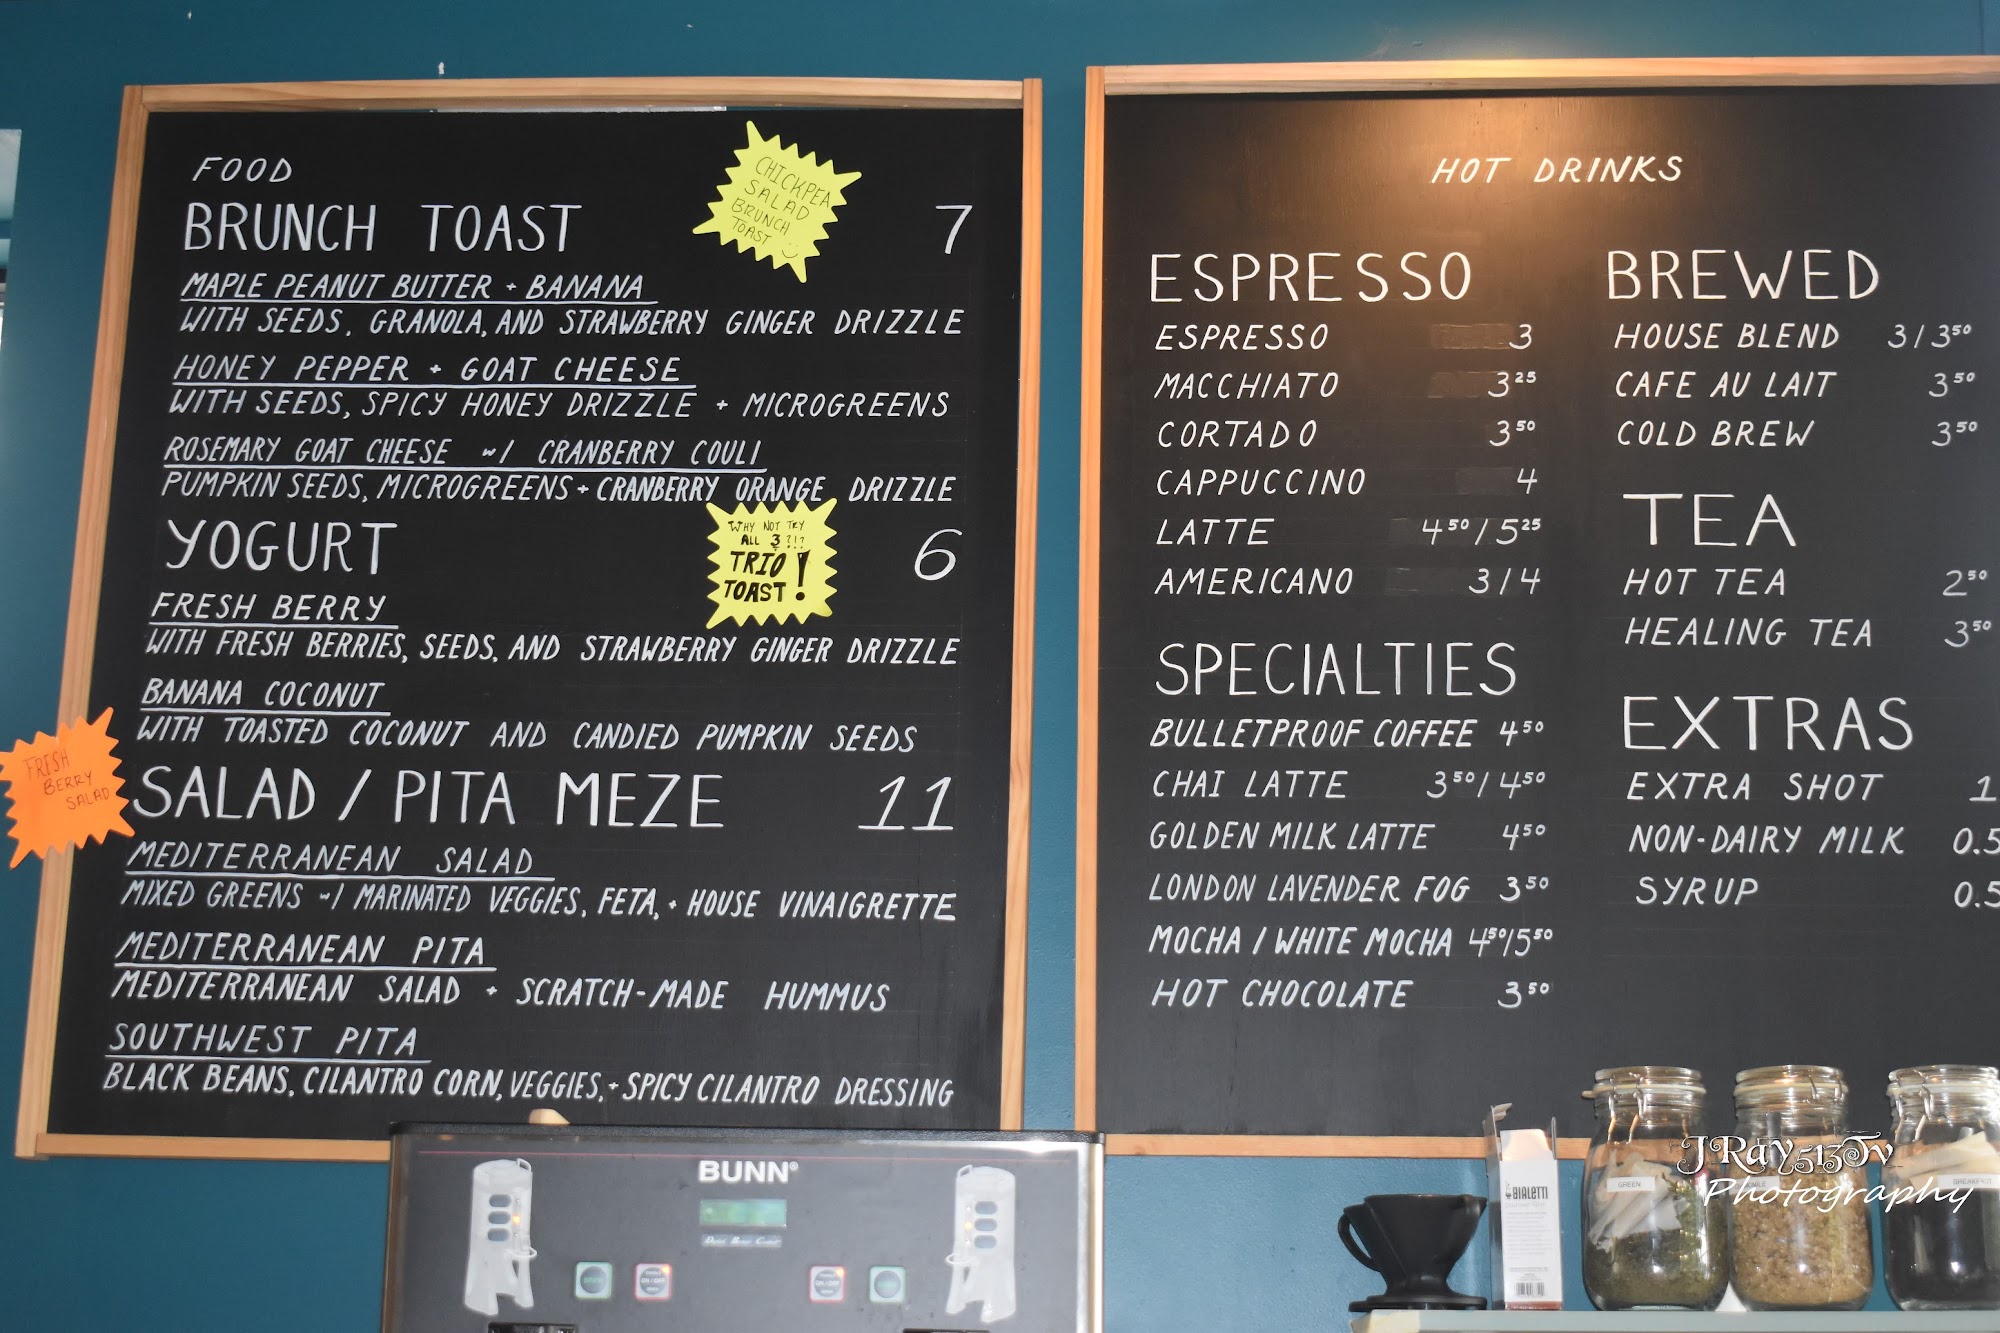 FOOD
BRUNCH TOAST 7
CHICKPEA
SALAD
BRUNCH
TOAST
MAPLE PEANUT BUTTER + BANANA
WITH SEEDS, GRANOLA, AND STRAWBERRY GINGER DRIZZLE
HONEY PEPPER + GOAT CHEESE
WITH SEEDS, SPICY HONEY DRIZZLE + MICROGREENS
ROSEMARY GOAT CHEESE w/ CRANBERRY COULI
PUMPKIN SEEDS, MICROGREENS + CRANBERRY ORANGE DRIZZLE
YOGURT 6
WHY NOT TRY
ALL 3?!?
TRIO
TOAST!
FRESH BERRY
WITH FRESH BERRIES, SEEDS, AND STRAWBERRY GINGER DRIZZLE
BANANA COCONUT
WITH TOASTED COCONUT AND CANDIED PUMPKIN SEEDS
FRESH
BERRY
SALAD
SALAD / PITA MEZE 11
MEDITERRANEAN SALAD
MIXED GREENS w/ MARINATED VEGGIES, FETA, + HOUSE VINAIGRETTE
MEDITERRANEAN PITA
MEDITERRANEAN SALAD + SCRATCH-MADE HUMMUS
SOUTHWEST PITA
BLACK BEANS, CILANTRO CORN, VEGGIES, + SPICY CILANTRO DRESSING
HOT DRINKS
ESPRESSO
ESPRESSO 3
MACCHIATO 3²⁵
CORTADO 3⁵⁰
CAPPUCCINO 4
LATTE 4⁵⁰/5²⁵
AMERICANO 3/4
SPECIALTIES
BULLETPROOF COFFEE 4⁵⁰
CHAI LATTE 3⁵⁰/4⁵⁰
GOLDEN MILK LATTE 4⁵⁰
LONDON LAVENDER FOG 3⁵⁰
MOCHA / WHITE MOCHA 4⁵⁰/5⁵⁰
HOT CHOCOLATE 3⁵⁰
BREWED
HOUSE BLEND 3/3⁵⁰
CAFE AU LAIT 3⁵⁰
COLD BREW 3⁵⁰
TEA
HOT TEA 2⁵⁰
HEALING TEA 3⁵⁰
EXTRAS
EXTRA SHOT 1
NON-DAIRY MILK 0.5
SYRUP 0.5
BUNN®
BIALETTI
GREEN
BREAKFAST
JRay513Tv
Photography